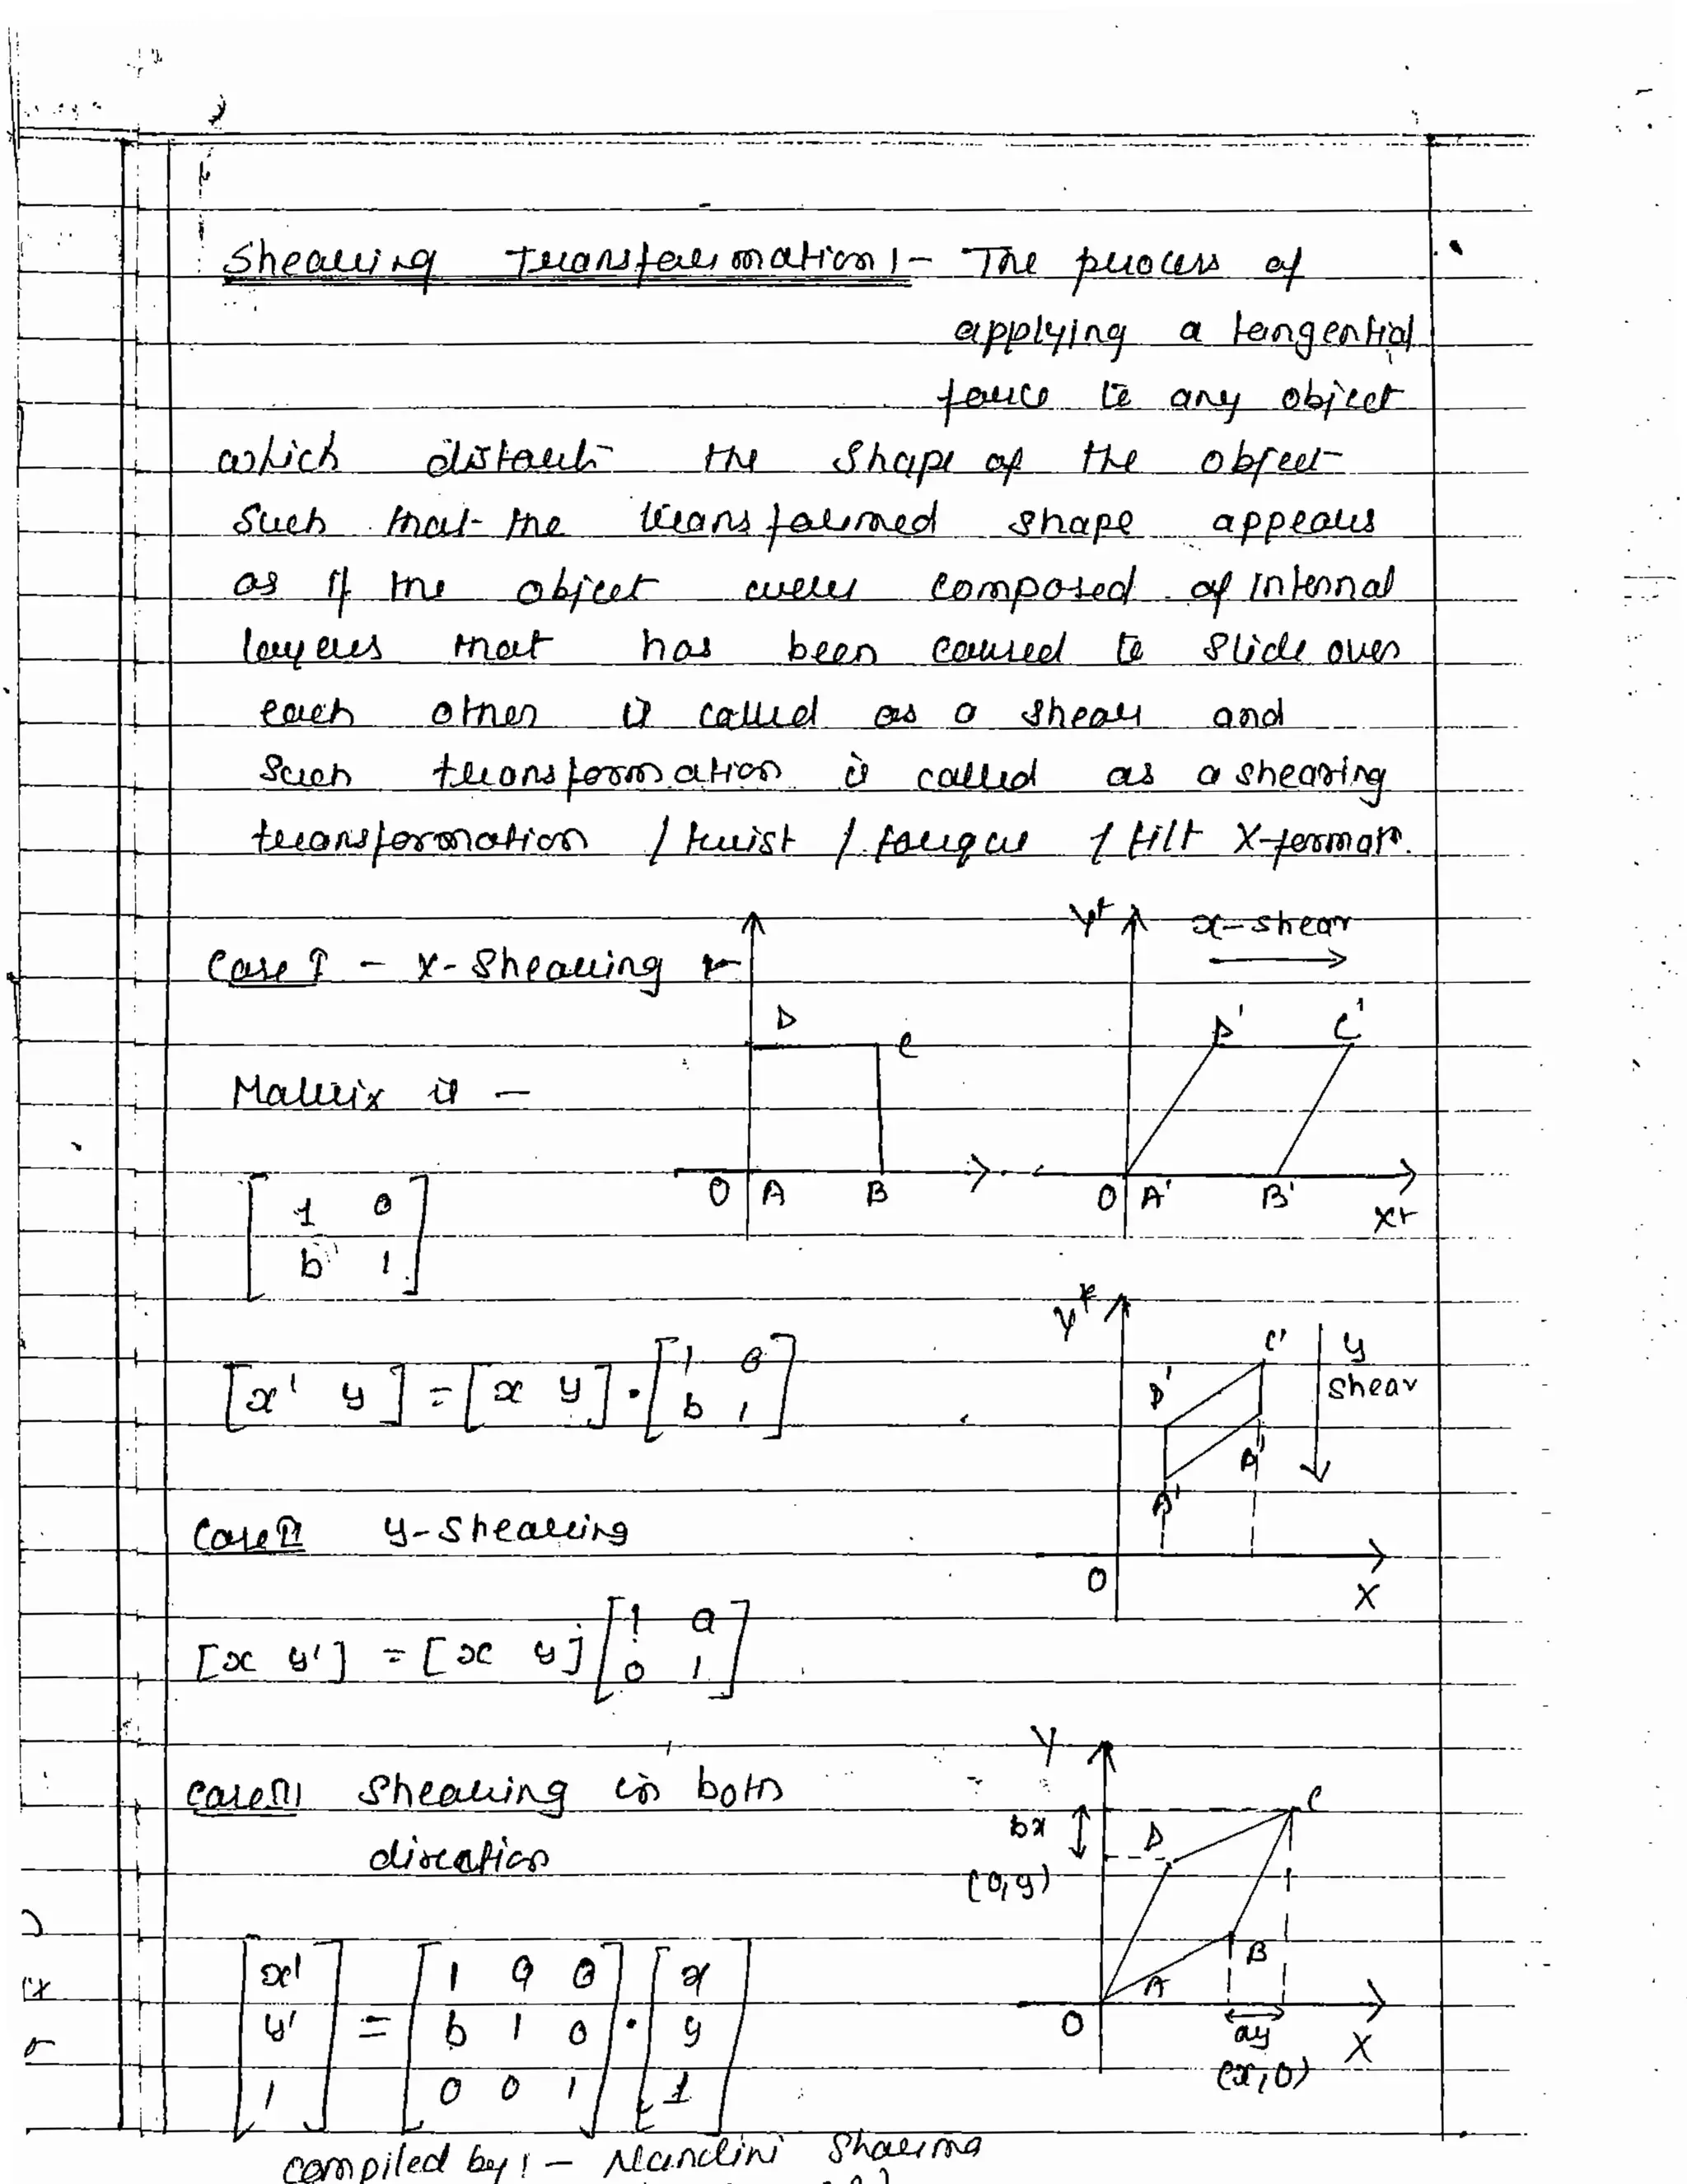 Shearing Transformation :- The process of
applying a tangential
force to any object
which distort the shape of the object
such that the transformed shape appears
as if the object were composed of internal
layers that has been caused to slide over
each other is called as a shear and
such transformation is called as a shearing
transformation / twist / torque / tilt X-format
Case I - X-Shearing
Y+ x-shear
D C D' C'
Matrix is -
O A B O A' B' X+
[ 1 0
b 1 ]
[x' y] = [x y] . [ 1 0
b 1 ]
Y
D' C' y shear
A' B'
O X
Case II y-Shearing
[x y'] = [x y] [ 1 a
0 1 ]
Case III Shearing in both
direction
Y
bx D C
(0,y)
A B
O ay X
(x,0)
[ x' = [ 1 a 0 . [ x
y' b 1 0 y
1 ] 0 0 1 ] 1 ]
compiled by :- Nandini Sharma